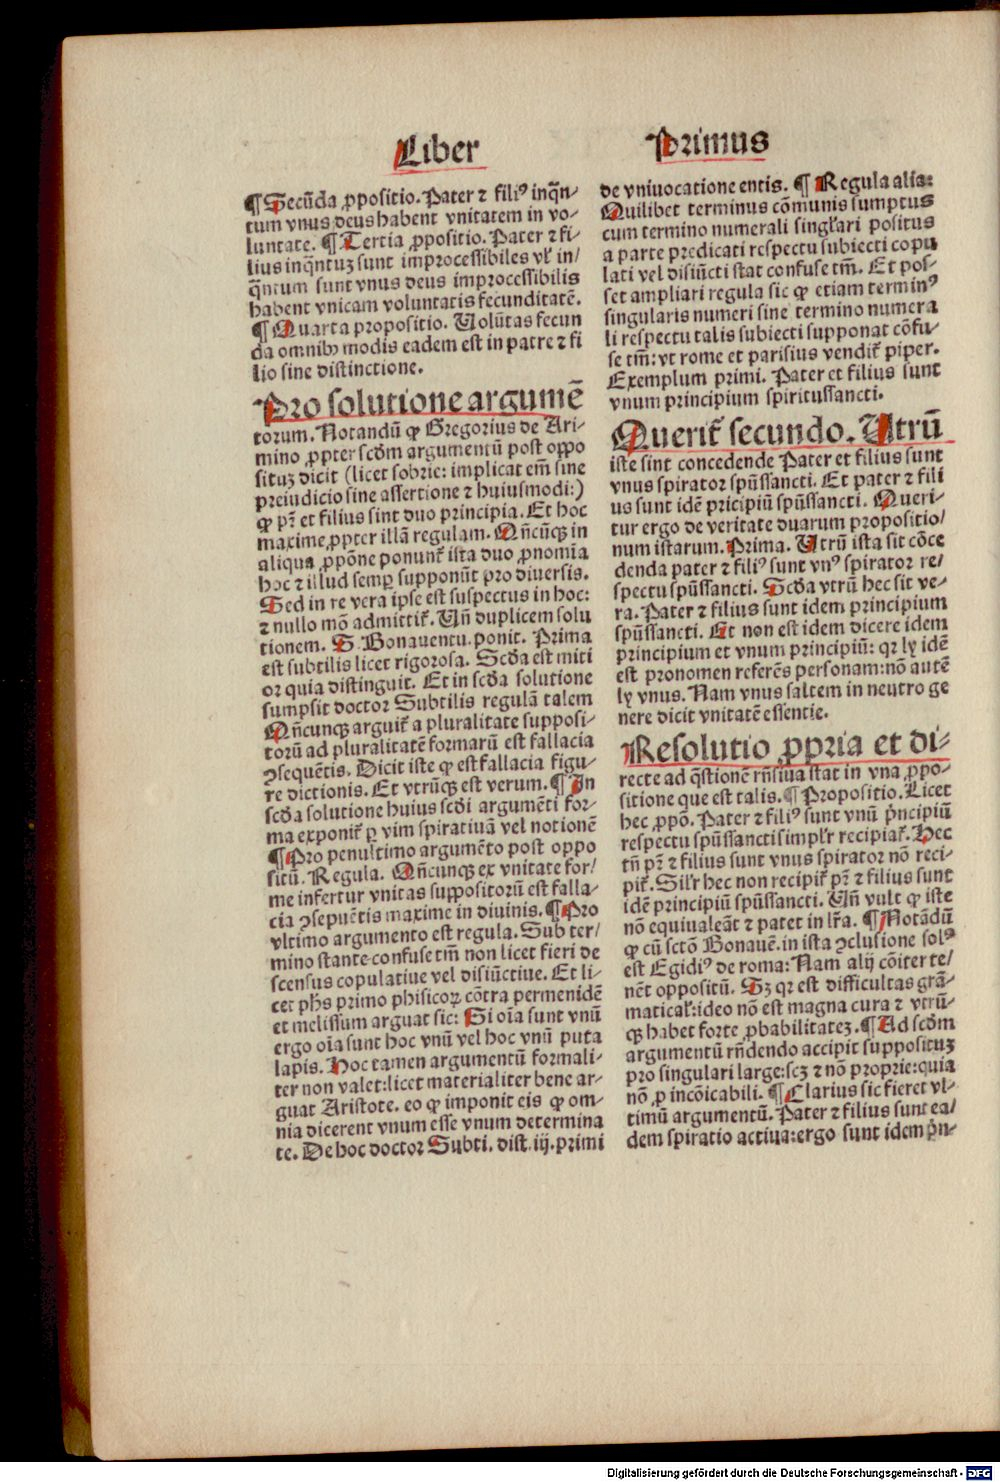 Liber Primus
¶ Secūda ꝓpositio. Pater ⁊ filiꝰ inq̄n-
tum vnus deus habent vnitatem in vo-
luntate. ¶ Tertia ꝓpositio. Pater ⁊ fi-
lius inqntuꝫ sunt improcessibiles vl̕ in/
q̄ntum sunt vnus deus improcessibilis
habent vnicam voluntatis fecunditatē.
¶ Quarta propositio. Volūtas fecun
da omnibꝰ modis eadem est in patre ⁊ fi
lio sine distinctione.
Pro solutione argumē
torum. Notandū ꝙ Gregorius de Ari-
mino ꝓpter scd̄m argumentū post oppo
situꝫ dicit (licet sobrie: implicat em̄ sine
preiudicio sine assertione ⁊ huiusmodi:)
ꝙ pr̄ et filius sint duo principia. Et hoc
maxime ꝓpter illā regulam. Qn̄cūqꝫ in
aliqua ꝓpōne ponunt̕ ista duo ꝓnomīa
hoc ⁊ illud semꝑ supponūt pro diuersis.
Sed in re vera ipse est suspectus in hoc:
⁊ nullo mō admittit̕. Vn̄ duplicem solu
tionem. S. Bonauentu. ponit. Prima
est subtilis licet rigorosa. Scd̄a est miti
or quia distinguit. Et in scd̄a solutione
sumpsit doctor Subtilis regulā talem
Qn̄cunqꝫ arguit̕ a pluralitate supposi-
torū ad pluralitatē formarū est fallacia
ꝯsequētis. Dicit iste ꝙ est fallacia figu-
re dictionis. Et vtrūqꝫ est verum. ¶ In
scd̄a solutione huius scd̄i argumēti for-
ma exponit̕ ꝑ vim spiratiuā vel notionē
¶ Pro penultimo argumēto post oppo
sitū. Regula. Qn̄cunqꝫ ex vnitate for/
me infertur vnitas suppositorū est falla-
cia ꝯsepuētis maxime in diuinis. ¶ Pro
vltimo argumento est regula. Sub ter/
mino stante confuse tm̄ non licet fieri de
scensus copulatiue vel disiūctiue. Et li-
cet ph̄s primo phisicoꝝ cōtra permenidē
et melissum arguat sic: Si oīa sunt vnū
ergo oīa sunt hoc vnū vel hoc vnū puta
lapis. Hoc tamen argumentū formali-
ter non valet: licet materialiter bene ar-
guat Aristote. eo ꝙ imponit eis ꝙ om-
nia dicerent vnum esse vnum determina
te. De hoc doctor Subti. dist. iij. primi
de vniuocatione entis. ¶ Regula alia:
Quilibet terminus cōmunis sumptus
cum termino numerali singl̕ari positus
a parte predicati respectu subiecti copu
lati vel disiūcti stat confuse tm̄. Et pos-
set ampliari regula sic ꝙ etiam terminꝰ
singularis numeri sine termino numera
li respectu talis subiecti supponat cōfu-
se tm̄: vt rome et parisius vendit̕ piper.
Exemplum primi. Pater et filius sunt
vnum principium spiritussancti.
Querit̕ secundo. Vtrū
iste sint concedende Pater et filius sunt
vnus spirator spūssancti. Et pater ⁊ fili
us sunt idē pricipiū spūssancti. Queri-
tur ergo de veritate duarum propositio/
num istarum. Prima. Vtrū ista sit cōce
denda pater ⁊ filiꝰ sunt vnꝰ spirator re/
spectu spūssancti. Scd̄a vtrū hec sit ve-
ra. Pater ⁊ filius sunt idem principium
spūssancti. Et non est idem dicere idem
principium et vnum principiū: qꝛ ly idē
est pronomen referēs personam: nō autē
ly vnus. Nam vnus saltem in neutro ge
nere dicit vnitatē essentie.
Resolutio ꝓpria et di-
recte ad q̄stionē rn̄siua stat in vna ꝓpo-
sitione que est talis. ¶ Propositio. Licet
hec ꝓpō. Pater ⁊ filiꝰ sunt vnū p̄ncipiū
respectu spūssancti simpl̕r recipiat̕. Hec
tn̄ pr̄ ⁊ filius sunt vnus spirator nō reci-
pit̕. Sil̕r hec non recipit̕ pr̄ ⁊ filius sunt
idē principiū spūssancti. Vn̄ vult ꝙ iste
nō equiualeāt ⁊ patet in lr̄a. ¶ Notādū
ꝙ cū sctō Bonauē. in ista ꝯclusione solꝰ
est Egidiꝰ de roma: Nam alij cōiter te/
nēt oppositū. Sꝫ qꝛ est difficultas grā-
matical̕: ideo nō est magna cura ⁊ vtrū-
qꝫ habet forte ꝓbabilitateꝫ. ¶ Ad scd̄m
argumentū rn̄dendo accipit supposituꝫ
pro singulari large: scꝫ ⁊ nō proprie: quia
nō ꝓ incōicabili. ¶ Clarius sic fieret vl-
timū argumentū. Pater ⁊ filius sunt ea/
dem spiratio actiua: ergo sunt idem p̄n-
Digitalisierung gefördert durch die Deutsche Forschungsgemeinschaft - DFG